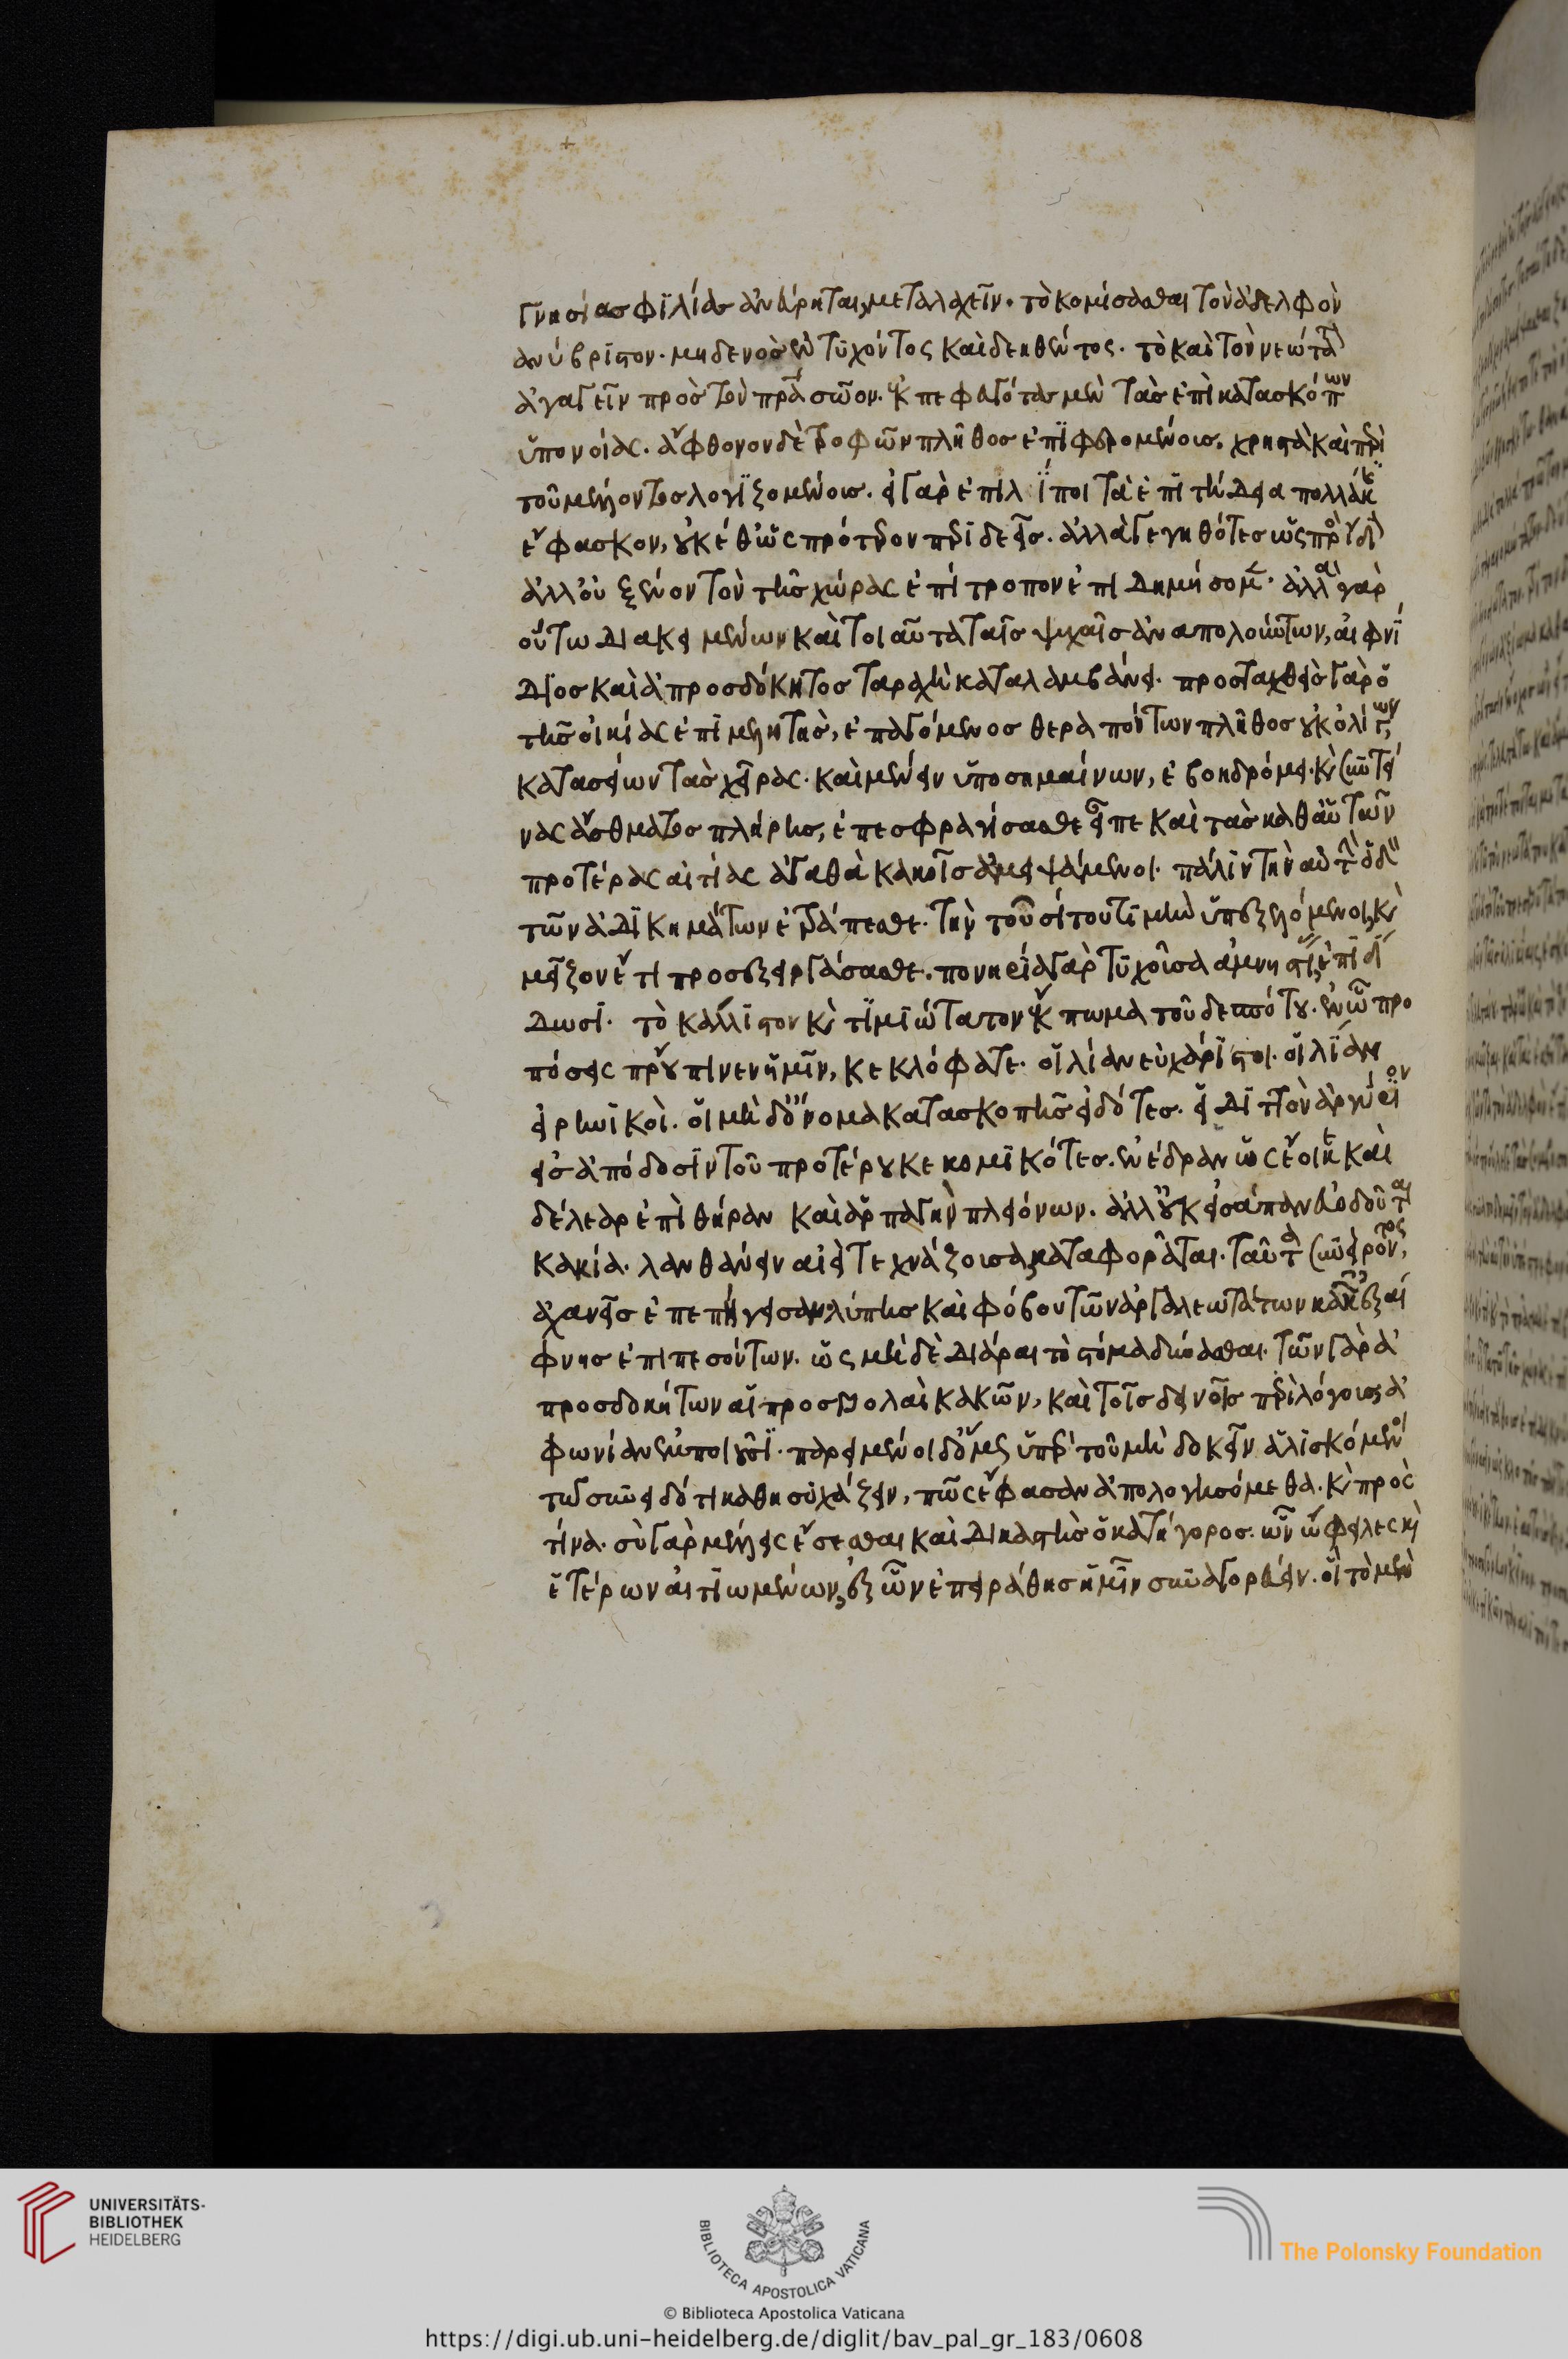 γνησίας φιλίας ἂν εὕρηται, μεταλαχεῖν. τὸ κομίσασθαι τὸν ἀδελφὸν
ἀνύβριστον. μηδενὸς ἐντυχόντος καὶ δεηθέντος. τὸ καὶ τὸν νεώτατ
ἀγαγεῖν πρὸς τὸν πρα σῶον. ἐκπεφευγότας μὲν τὰς ἐπὶ κατασκόπων
ὑπονοίας. ἄφθονον δὲ τροφῶν πλῆθος ἐπιφερομένοις, χρηστὰ καὶ περὶ
τοῦ μέλλοντος λογιζομένοις. εἰ γὰρ ἐπιλίποι τὰ ἐπιτήδεια πολλάκις
ἔφασκον, οὐκέθ ὡς πρότερον περιδεεῖς. ἀλλὰ γεγηθότες ὡς πρὸς ἴδι
ἀλλ οὐ ξένον τὸν τῆς χώρας ἐπίτροπον ἐπιδημήσομεν. ἀλλὰ γὰρ
οὕτω διακειμένων καὶ τοιαῦτα ταῖς ψυχαῖς ἀναπολούντων, αἰφνί
διος καὶ ἀπροσδόκητος ταραχὴ καταλαμβάνει. προσταχθεὶς γὰρ ὁ
τῆς οἰκίας ἐπιμελητὴς, ἐπαγόμενος θεραπόντων πλῆθος οὐκ ὀλίγων,
κατασείων τὰς χεῖρας. καὶ μένειν ὑποσημαίνων, ἐβοηδρόμει. κὶ συντεί
νας ἄσθματος πλήρης, ἐπεσφραγίσασθε εἶπε καὶ τὰς καθ αὑτῶν
προτέρας αἰτίας ἀγαθὰ κακοῖς ἀμειψάμενοι. πάλιν τὴν αὐτὴν ὁδὸν
τῶν ἀδικημάτων ἐτράπεσθε. τὴν τοῦ σίτου τιμὴν ὑπεξελόμενοι, κὶ
μεῖζον ἔτι προσεξειργάσασθε. πονηρία γὰρ τυχοῦσα ἀμνηστίας, ἐπιδί
δωσι. τὸ κάλλιστον κὶ τιμιώτατον ἔκπωμα τοῦ δεσπότου. ἐν ᾧ προ
πόσεις προὔπινεν ἡμῖν, κεκλόφατε. οἱ λίαν εὐχάριστοι. οἱ λίαν
εἰρηνικοὶ. οἱ μὴ δ ὄνομα κατασκοπῆς εἰδότες. οἱ διττὸν ἀργύριον
εἰς ἀπόδοσιν τοῦ προτέρου κεκομικότες. ἐνέδραν ὡς ἔοικε καὶ
δέλεαρ ἐπὶ θήραν καὶ ἁρπαγὴν πλειόνων. ἀλλ οὐκ εἰσάπαν εὐοδοῦται
κακία. λανθάνειν ἀεὶ τεχνάζουσα, καταφορᾶται. ταῦτα συνείροντος,
ἀχανεῖς ἐπεπήγεσαν. λύπης καὶ φόβου τῶν ἀργαλεωτάτων κακῶν ἐξαί
φνης ἐπιπεσόντων. ὡς μηδὲ διᾶραι τὸ στόμα δύνασθαι. τῶν γὰρ ἀ
προσδοκήτων αἱ προσβολαὶ κακῶν, καὶ τοῖς δεινοῖς περὶ λόγους ἀ
φωνίαν ἐμποιοῦσι. παρειμένοι δ ὅμως ὑπὲρ τοῦ μὴ δοκεῖν ἁλισκόμενοι
τῷ συνειδότι καθησυχάζειν, πῶς ἔφασαν ἀπολογησόμεθα. κὶ πρὸς
τίνα. σὺ γὰρ μέλλεις ἔσεσθαι καὶ δικαστὴς ὁ κατήγορος. ὢν ὤφειλες κὶ
ἑτέρων αἰτιωμένων, ἐξ ὧν ἐπειράθης ἡμῖν συναγορεύειν. οἱ τὸ μὲν
UNIVERSITÄTS-
BIBLIOTHEK
HEIDELBERG
BIBLIOTECA APOSTOLICA VATICANA
The Polonsky Foundation
© Biblioteca Apostolica Vaticana
https://digi.ub.uni-heidelberg.de/diglit/bav_pal_gr_183/0608